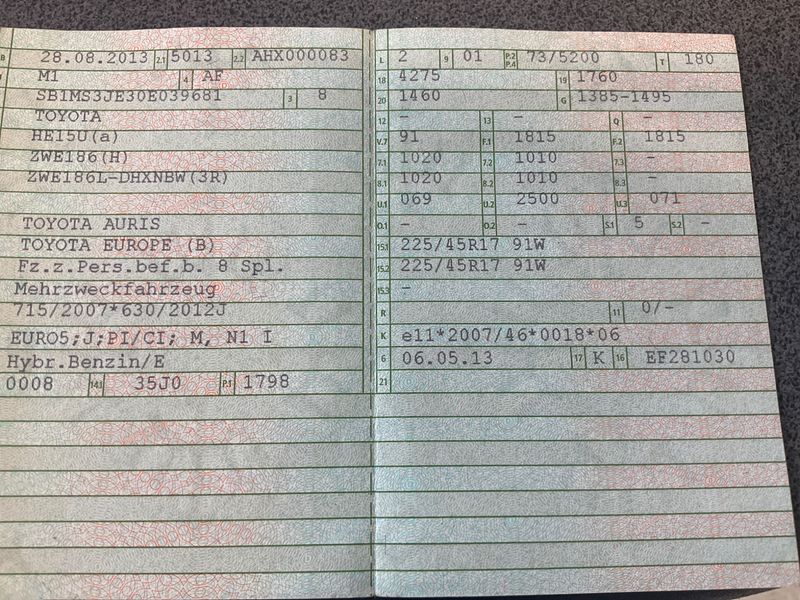 B 28.08.2013 2.1 5013 2.2 AHX000083
M1 4 AF
SB1MS3JE30E039681 3 8
TOYOTA
HE15U(a)
ZWE186(H)
ZWE186L-DHXNBW(3R)
TOYOTA AURIS
TOYOTA EUROPE (B)
Fz.z.Pers.bef.b. 8 Spl.
Mehrzweckfahrzeug
715/2007*630/2012J
EURO5;J;PI/CI; M, N1 I
Hybr.Benzin/E
0008 14.1 35J0 P.1 1798
L 2 9 01 P.2 P.4 73/5200 T 180
18 4275 19 1760
20 1460 G 1385-1495
12 - 13 - Q -
V.7 91 F.1 1815 F.2 1815
7.1 1020 7.2 1010 7.3 -
8.1 1020 8.2 1010 8.3 -
U.1 069 U.2 2500 U.3 071
O.1 - O.2 - S.1 5 S.2 -
15.1 225/45R17 91W
15.2 225/45R17 91W
15.3 -
R 11 0/-
K e11*2007/46*0018*06
6 06.05.13 17 K 16 EF281030
21